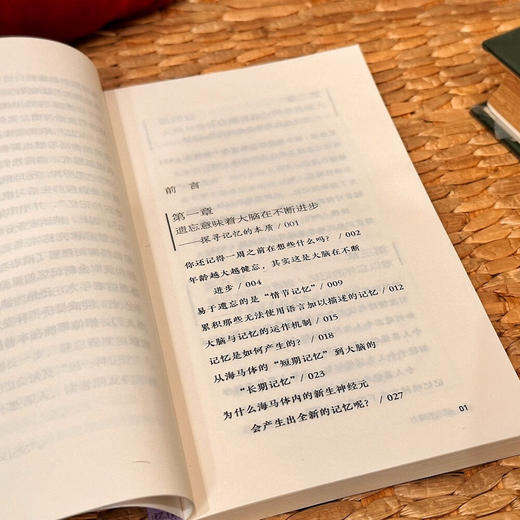 前 言
第一章
遗忘意味着大脑在不断进步
——探寻记忆的本质 / 001
你还记得一周之前在想些什么吗？ / 002
年龄越大越健忘，其实这是大脑在不断
进步 / 004
易于遗忘的是“情节记忆” / 009
累积那些无法使用语言加以描述的记忆 / 012
大脑与记忆的运作机制 / 015
记忆是如何产生的？ / 018
从海马体的“短期记忆”到大脑的
“长期记忆” / 023
为什么海马体内的新生神经元
会产生出全新的记忆呢？ / 027
01